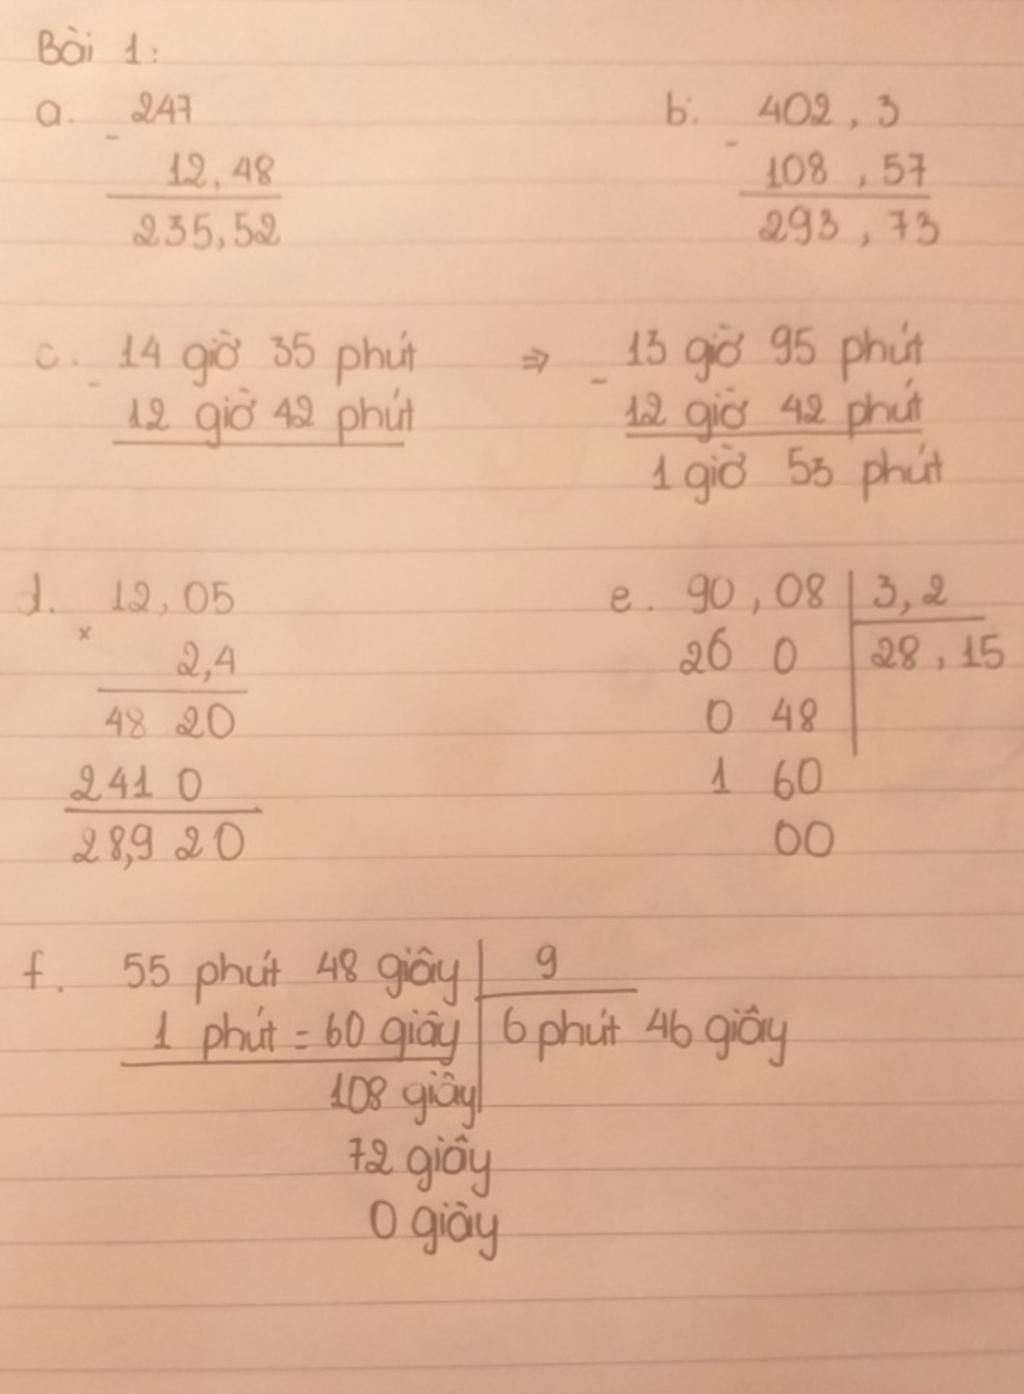 Bài 1:
a. 247
- 12,48
235,52
b. 402,3
- 108,57
293,73
c. 14 giờ 35 phút
- 12 giờ 42 phút
⇒ 13 giờ 95 phút
- 12 giờ 42 phút
1 giờ 53 phút
d. 12,05
x 2,4
48 20
241 0
28,9 20
e. 90,08 | 3,2
26 0 | 28,15
0 48
1 60
00
f. 55 phút 48 giây | 9
1 phút = 60 giây | 6 phút 46 giây
108 giây
72 giây
0 giây